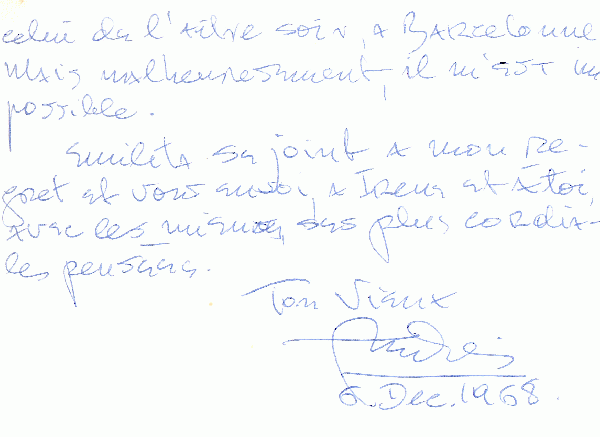 celui de l'autre soir, a Barcelonne
Mais malheureusement, il m'est im
possible.
Emilita se joint a mon re-
gret et vous envoi, a Irene et a toi,
avec les miens, ses plus cordia-
les pensées.
Ton vieux
6 Dec. 1968.